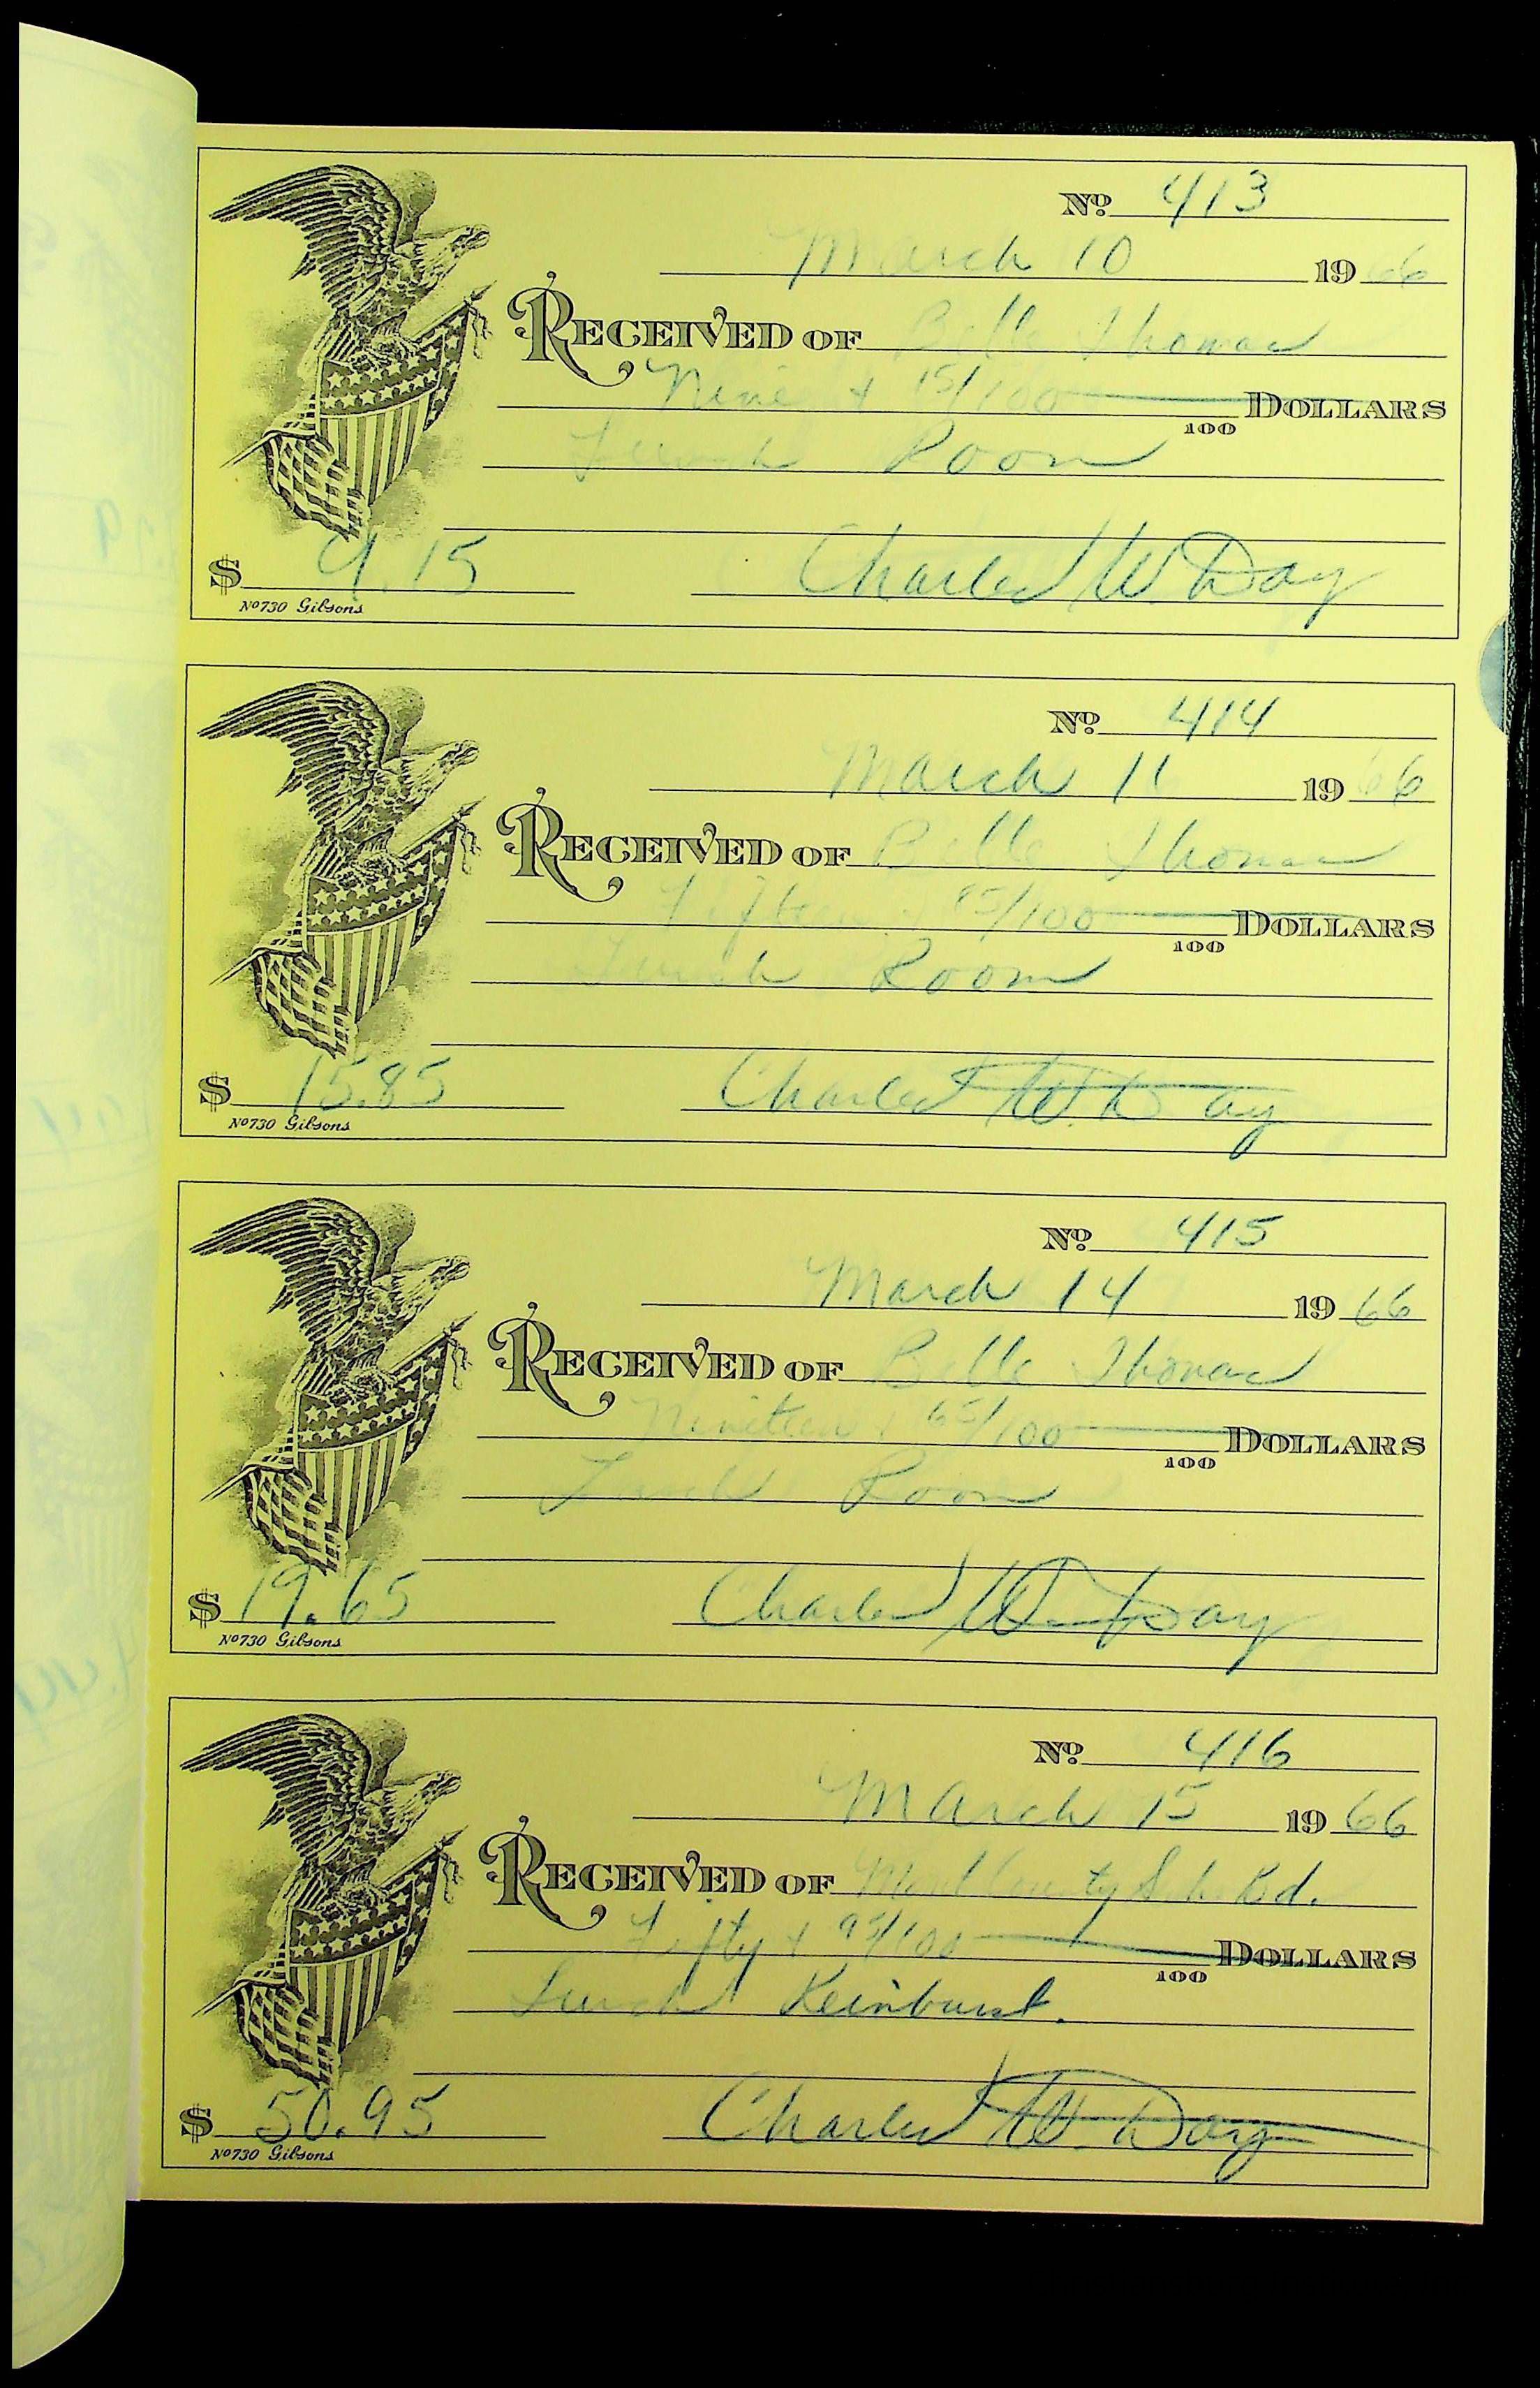 No 413
March 10 1966
RECEIVED OF Belle Thomas
Nine + 15/100 DOLLARS
100
Lunch Room
$ 9.15 Charles W. Day
No 730 Gibsons
No 414
March 11 1966
RECEIVED OF Belle Thomas
Fifteen + 85/100 DOLLARS
100
Lunch Room
$ 15.85 Charles W. Day
No 730 Gibsons
No 415
March 14 1966
RECEIVED OF Belle Thomas
Nineteen + 65/100 DOLLARS
100
Lunch Room
$ 19.65 Charles W. Day
No 730 Gibsons
No 416
March 15 1966
RECEIVED OF County Sch. Bd.
Fifty + 95/100 DOLLARS
100
Lunch Reinburst.
$ 50.95 Charles W. Day
No 730 Gibsons